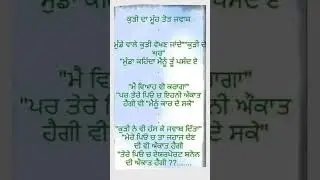 ਕੁੜੀ ਦਾ ਮੂੰਹ ਤੋੜ ਜਵਾਬ
ਮੁੰਡੇ ਵਾਲੇ ਕੁੜੀ ਵੇਖਣ ਜਾਂਦੇ""ਕੁੜੀ ਦੇ
ਘਰ"
"ਮੁੰਡਾ ਕਹਿੰਦਾ ਮੈਨੂੰ ਤੂੰ ਪਸੰਦ ਏ
"ਮੈ ਵਿਆਹ ਵੀ ਕਰਾਗਾ"
"ਪਰ ਤੇਰੇ ਪਿਓ ਚ ਇਹਨੀ ਔਕਾਤ
ਹੈਗੀ ਵੀ "ਮੈਨੂੰ ਕਾਰ ਦੇ ਸਕੇ"
"ਕੁੜੀ ਨੇ ਵੀ ਹੱਸ ਕੇ ਜਵਾਬ ਦਿੱਤਾ"
"ਮੇਰੇ ਪਿਓ ਚ ਤਾ ਜਹਾਜ ਦੇਣ
ਦੀ ਵੀ ਔਕਾਤ ਹੈਗੀ
"ਤੇਰੇ ਪਿਓ ਚ ਏਅਰਪੋਰਟ ਬਨੋਨ
ਦੀ ਔਕਾਤ ਹੈਗੀ ??.......